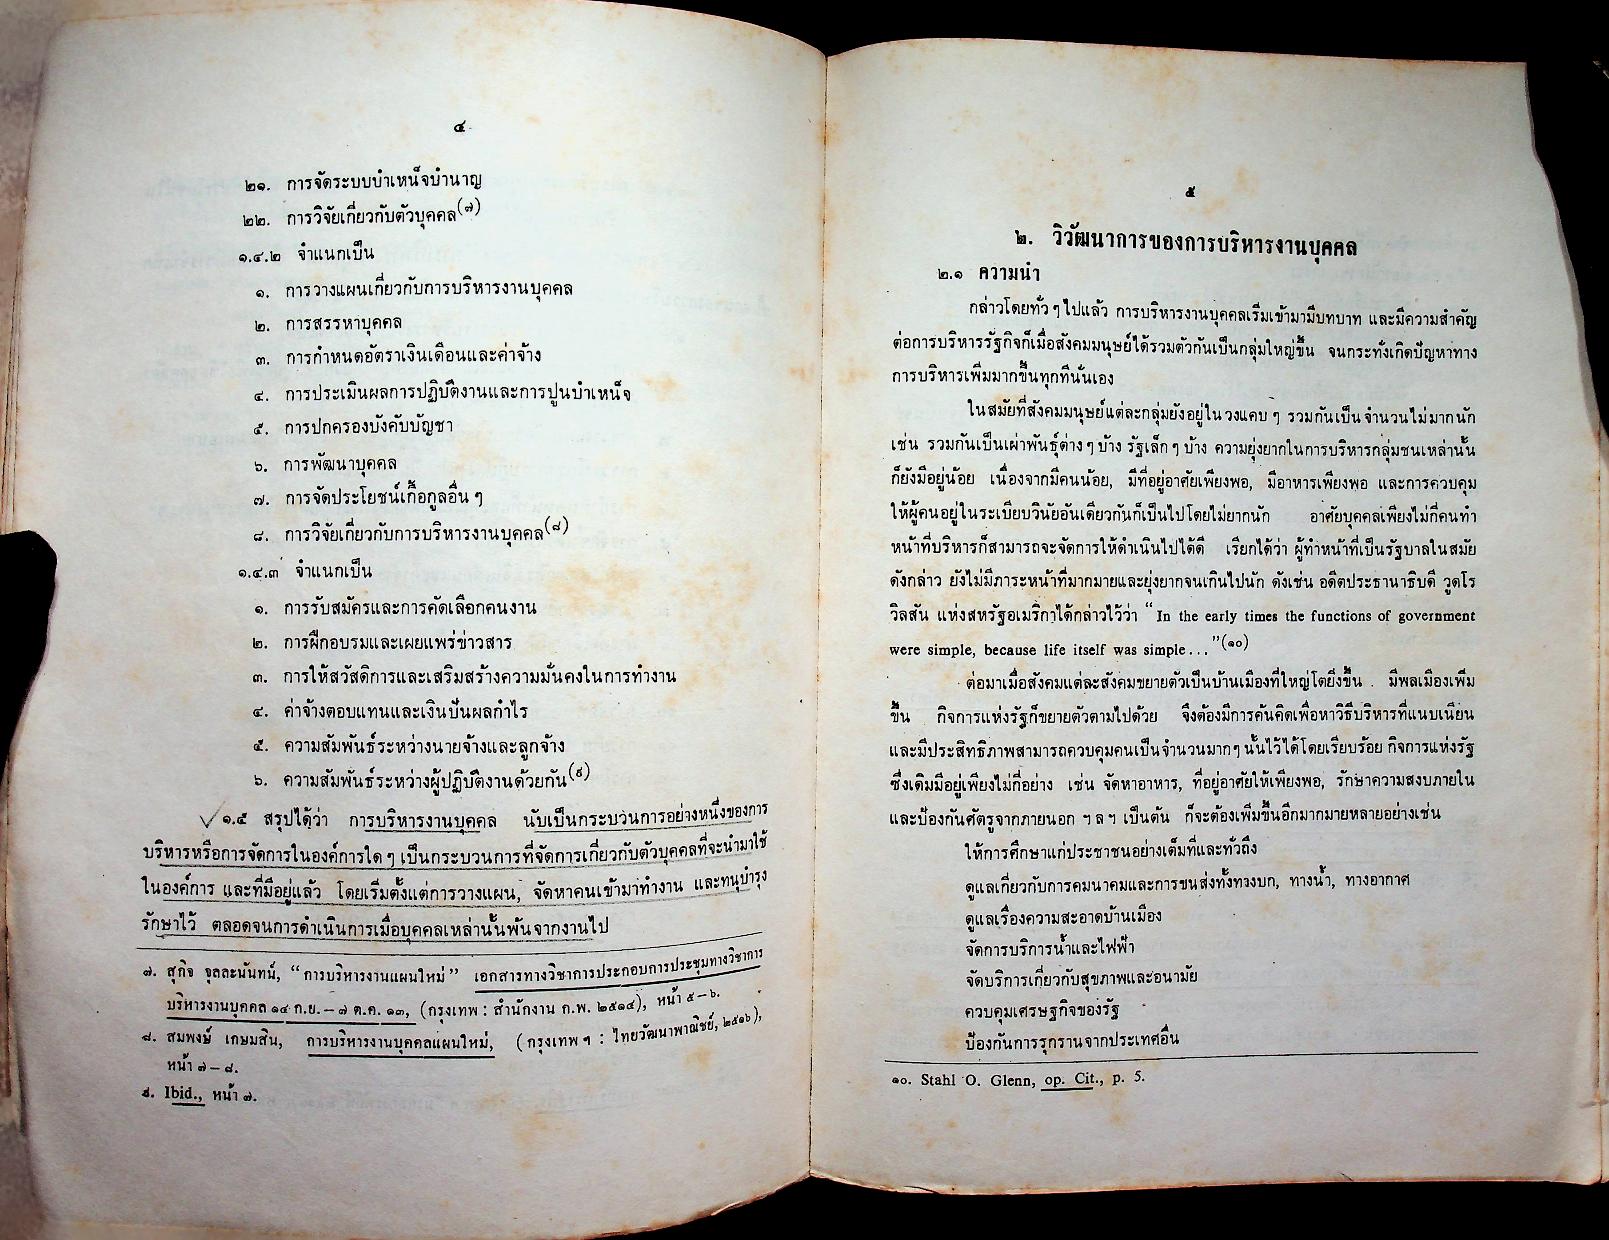 ๔
๒๑. การจัดระบบบำเหน็จบำนาญ
๒๒. การวิจัยเกี่ยวกับตัวบุคคล(๗)
๑.๔.๒ จำแนกเป็น
๑. การวางแผนเกี่ยวกับการบริหารงานบุคคล
๒. การสรรหาบุคคล
๓. การกำหนดอัตราเงินเดือนและค่าจ้าง
๔. การประเมินผลการปฏิบัติงานและการปูนบำเหน็จ
๕. การปกครองบังคับบัญชา
๖. การพัฒนาบุคคล
๗. การจัดประโยชน์เกื้อกูลอื่น ๆ
๘. การวิจัยเกี่ยวกับการบริหารงานบุคคล(๘)
๑.๔.๓ จำแนกเป็น
๑. การรับสมัครและการคัดเลือกคนงาน
๒. การฝึกอบรมและเผยแพร่ข่าวสาร
๓. การให้สวัสดิการและเสริมสร้างความมั่นคงในการทำงาน
๔. ค่าจ้างตอบแทนและเงินปันผลกำไร
๕. ความสัมพันธ์ระหว่างนายจ้างและลูกจ้าง
๖. ความสัมพันธ์ระหว่างผู้ปฏิบัติงานด้วยกัน(๙)
๑.๕ สรุปได้ว่า การบริหารงานบุคคล นับเป็นกระบวนการอย่างหนึ่งของการ
บริหารหรือการจัดการในองค์การใด ๆ เป็นกระบวนการที่จัดการเกี่ยวกับตัวบุคคลที่จะนำมาใช้
ในองค์การ และที่มีอยู่แล้ว โดยเริ่มตั้งแต่การวางแผน, จัดหาคนเข้ามาทำงาน และทนุบำรุง
รักษาไว้ ตลอดจนการดำเนินการเมื่อบุคคลเหล่านั้นพ้นจากงานไป
๗. สุกิจ จุลละนันทน์, “การบริหารงานแผนใหม่” เอกสารทางวิชาการประกอบการประชุมทางวิชาการ
บริหารงานบุคคล ๑๔ ก.ย. – ๗ ต.ค. ๑๓, (กรุงเทพ : สำนักงาน ก.พ. ๒๕๑๔), หน้า ๕–๖.
๘. สมพงษ์ เกษมสิน, การบริหารงานบุคคลแผนใหม่, (กรุงเทพ ฯ : ไทยวัฒนาพาณิชย์, ๒๕๑๖),
หน้า ๗ – ๘.
๙. Ibid., หน้า ๗.
๕
๒. วิวัฒนาการของการบริหารงานบุคคล
๒.๑ ความนำ
กล่าวโดยทั่ว ๆ ไปแล้ว การบริหารงานบุคคลเริ่มเข้ามามีบทบาท และมีความสำคัญ
ต่อการบริหารรัฐกิจก็เมื่อสังคมมนุษย์ได้รวมตัวกันเป็นกลุ่มใหญ่ขึ้น จนกระทั่งเกิดปัญหาทาง
การบริหารเพิ่มมากขึ้นทุกทีนั่นเอง
ในสมัยที่สังคมมนุษย์แต่ละกลุ่มยังอยู่ในวงแคบ ๆ รวมกันเป็นจำนวนไม่มากนัก
เช่น รวมกันเป็นเผ่าพันธุ์ต่าง ๆ บ้าง รัฐเล็ก ๆ บ้าง ความยุ่งยากในการบริหารกลุ่มชนเหล่านั้น
ก็ยังมีอยู่น้อย เนื่องจากมีคนน้อย, มีที่อยู่อาศัยเพียงพอ, มีอาหารเพียงพอ และการควบคุม
ให้ผู้คนอยู่ในระเบียบวินัยอันเดียวกันก็เป็นไปโดยไม่ยากนัก อาศัยบุคคลเพียงไม่กี่คนทำ
หน้าที่บริหารก็สามารถจะจัดการให้ดำเนินไปได้ดี เรียกได้ว่า ผู้ทำหน้าที่เป็นรัฐบาลในสมัย
ดังกล่าว ยังไม่มีภาระหน้าที่มากมายและยุ่งยากจนเกินไปนัก ดังเช่น อดีตประธานาธิบดี วูดโร
วิลสัน แห่งสหรัฐอเมริกาได้กล่าวไว้ว่า “In the early times the functions of government
were simple, because life itself was simple... ”(๑๐)
ต่อมาเมื่อสังคมแต่ละสังคมขยายตัวเป็นบ้านเมืองที่ใหญ่โตยิ่งขึ้น มีพลเมืองเพิ่ม
ขึ้น กิจการแห่งรัฐก็ขยายตัวตามไปด้วย จึงต้องมีการค้นคิดเพื่อหาวิธีบริหารที่แนบเนียน
และมีประสิทธิภาพสามารถควบคุมคนเป็นจำนวนมากๆ นั้นไว้ได้โดยเรียบร้อย กิจการแห่งรัฐ
ซึ่งเดิมมีอยู่เพียงไม่กี่อย่าง เช่น จัดหาอาหาร, ที่อยู่อาศัยให้เพียงพอ, รักษาความสงบภายใน
และป้องกันศัตรูจากภายนอก ฯ ล ฯ เป็นต้น ก็จะต้องเพิ่มขึ้นอีกมากมายหลายอย่างเช่น
ให้การศึกษาแก่ประชาชนอย่างเต็มที่และทั่วถึง
ดูแลเกี่ยวกับการคมนาคมและการขนส่งทั้งทางบก, ทางน้ำ, ทางอากาศ
ดูแลเรื่องความสะอาดบ้านเมือง
จัดการบริการน้ำและไฟฟ้า
จัดบริการเกี่ยวกับสุขภาพและอนามัย
ควบคุมเศรษฐกิจของรัฐ
ป้องกันการรุกรานจากประเทศอื่น
๑๐. Stahl O. Glenn, op. Cit., p. 5.